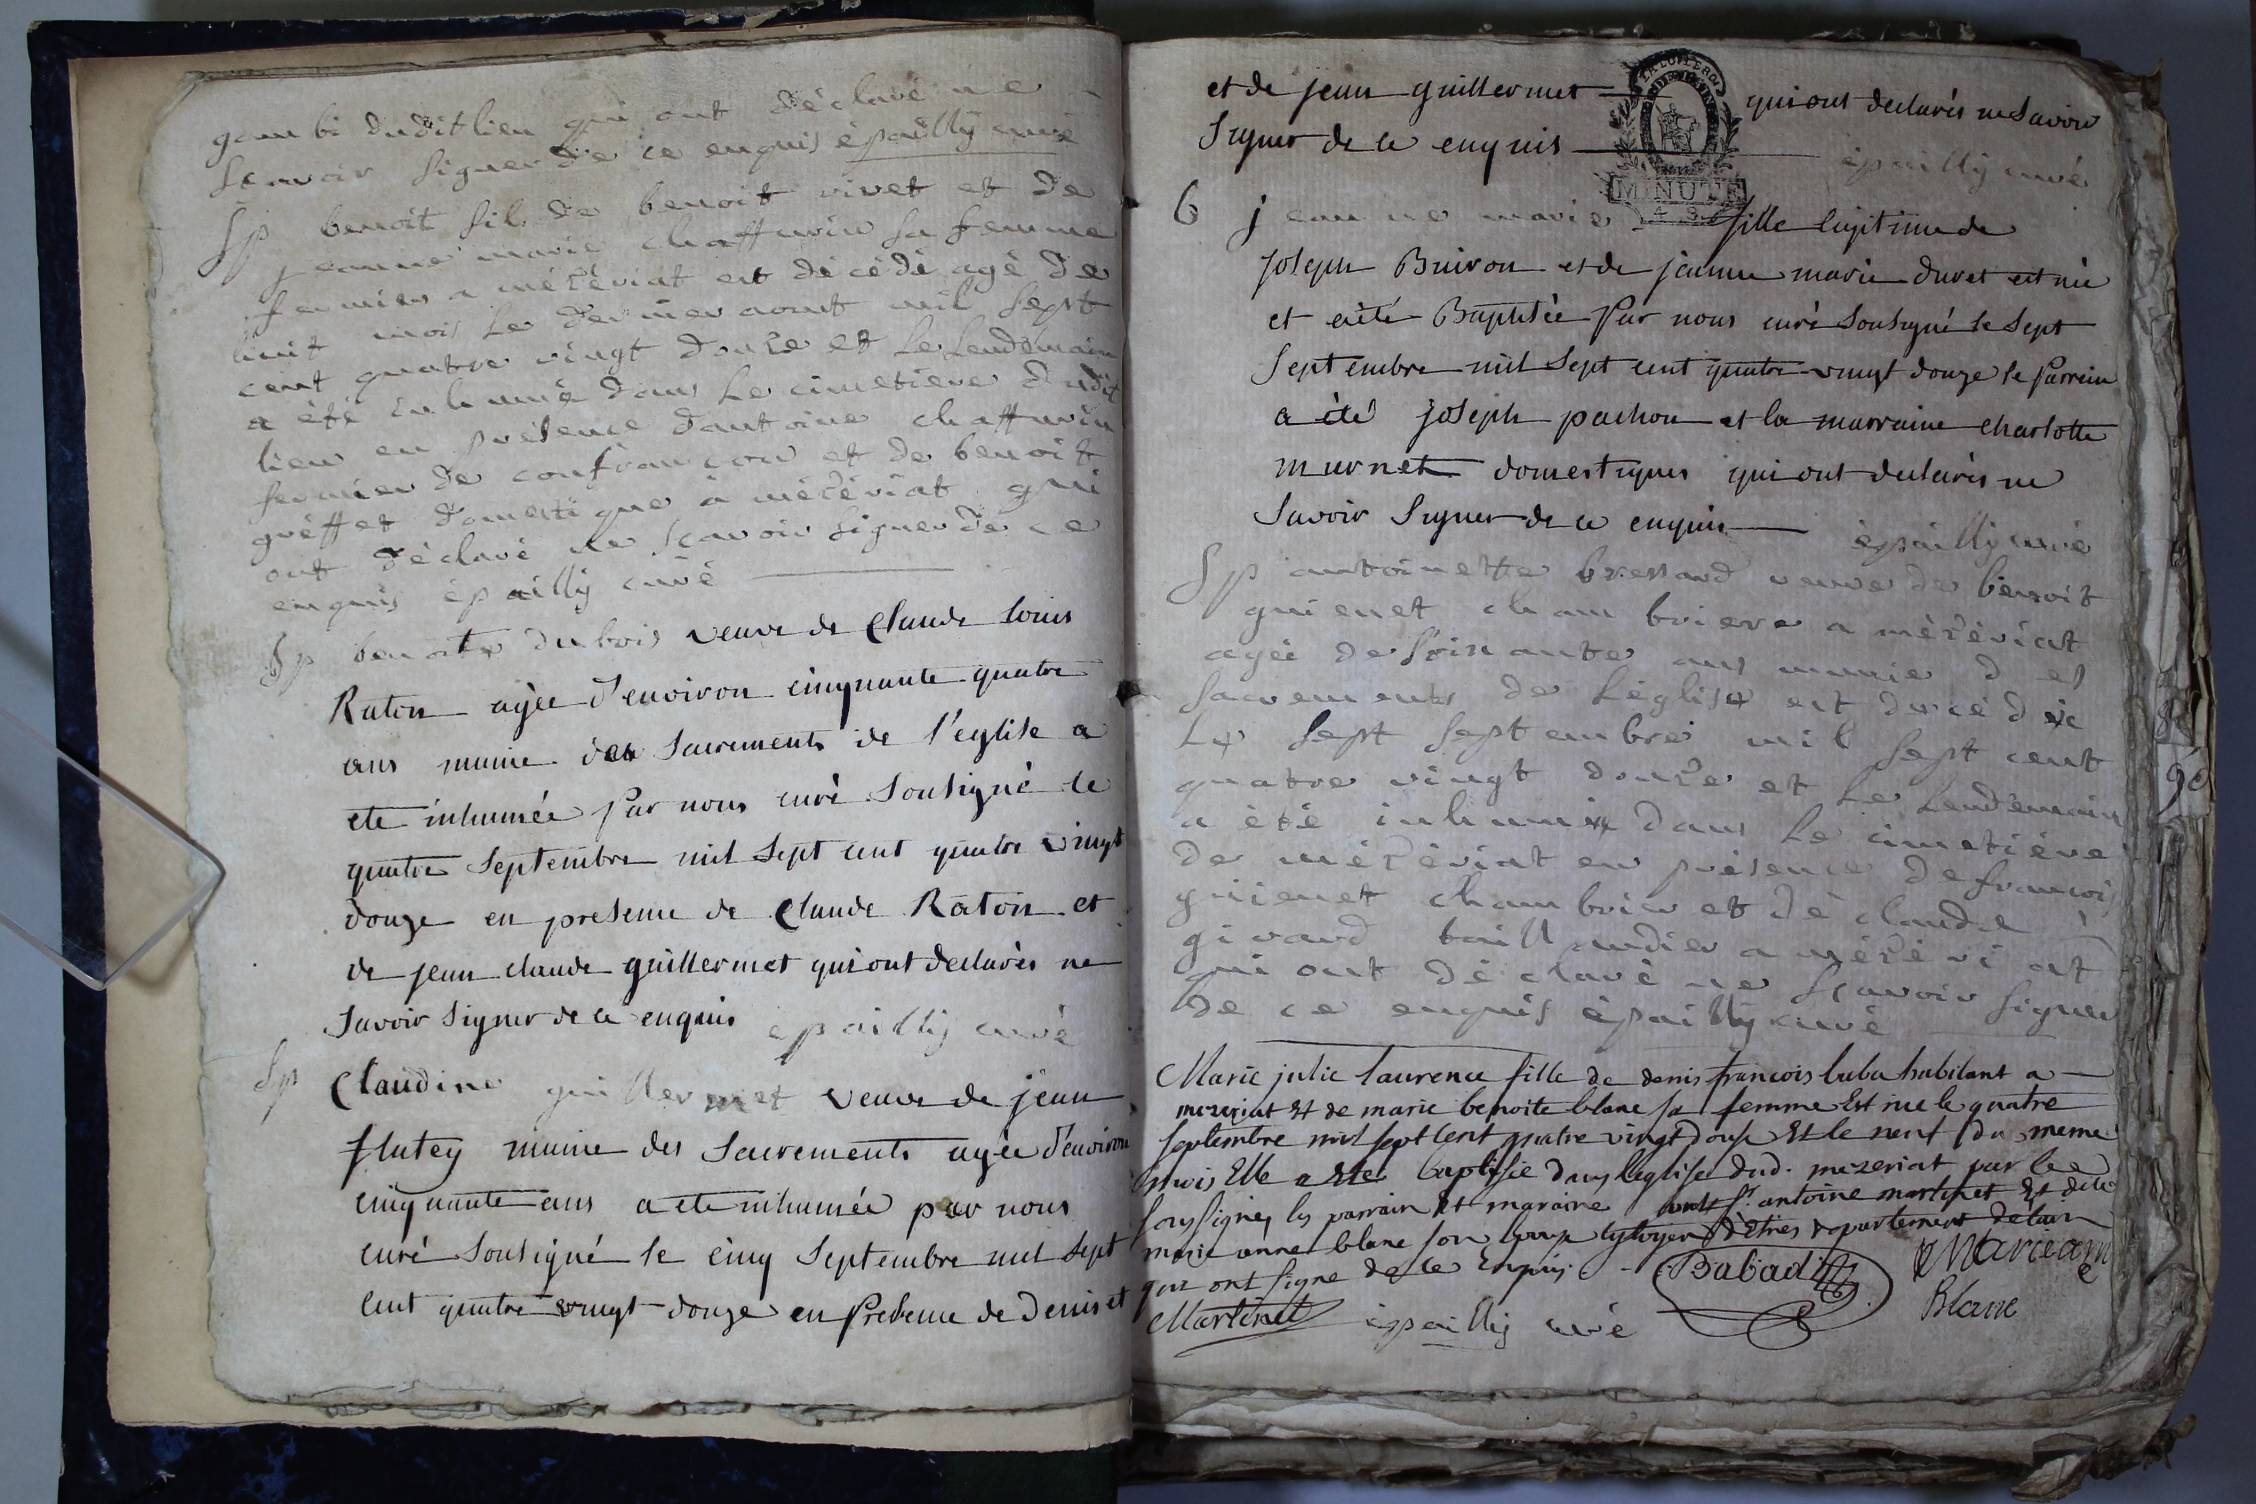 gambi dudit lieu qui ont déclaré ne
scavoir signer de ce enquis épailly curé
Sp benoit fil de benoit vivet et de
jeanne marie chaffurin sa femme
fermier a mézériat est décédé agé de
huit mois le dernier aout mil sept
cent quatre vingt douze et le lendemain
a été inhumé dans le cimetiere dudit
lieu en présence d'antoine chaffurin
fermier de confrançon et de benoit
greffet domestique à mézériat qui
ont déclaré ne scavoir signer de ce
enquis épailly curé
Sp benoite dubois veuve de Claude Louis
Raton agée d'environ cinquante quatre
ans munie des Sacrements de l'église a
ete inhumée par nous curé Soussigné le
quatre Septembre mil Sept cent quatre vingt
douze en presence de Claude Raton et
de jean claude guillermet qui ont declarés ne
Savoir Signer de ce enquis épailly curé
Sp Claudine guillermet veuve de jean
flutey munie des Sacrements agée d'environ
cinquante ans a ete inhumée par nous
curé Soussigné le cinq Septembre mil Sept
cent quatre vingt douze en presence de Denis et
et de jean guillermet qui ont declarés ne Savoir
Signer de ce enquis épailly curé
MINUTE
4 S.
6 jeanne marie fille legitime de
joseph Buiron et de jeanne marie duret est née
et a été Baptisée par nous curé Soussigné le Sept
Septembre mil Sept cent quatre vingt douze le parrein
a été joseph pachon et la marraine charlotte
murnet domestiques qui ont declarés ne
Savoir Signer de ce enquis épailly curé
Sp antoinette bressand veuve de benoit
guienet chambriere a mézériat
agée de soixante ans munie des
sacrements de l'église est décédée
le sept septembre mil sept cent
quatre vingt douze et le lendemain
a été inhumée dans le cimetiére
de mézériat en présence de francois
guienet chambrier et de claude
girard taillandier a mézériat
qui ont déclaré ne scavoir signer
de ce enquis épailly curé
Marie julie laurence fille de denis francois habitant a
mezeriat et de marie benoite blanc sa femme Est née le quatre
septembre mil sept cent quatre vingt douse Et le neuf du meme
mois Elle a ete baptisée dans l'eglise dud. mezeriat par le
soussigné, les parrain Et maraine sont sr antoine martinet Et dlle
marie anne blanc departement de lain
qui ont signe de ce Enquis.
Babad
Marceau
Martinet épailly curé
Blanc